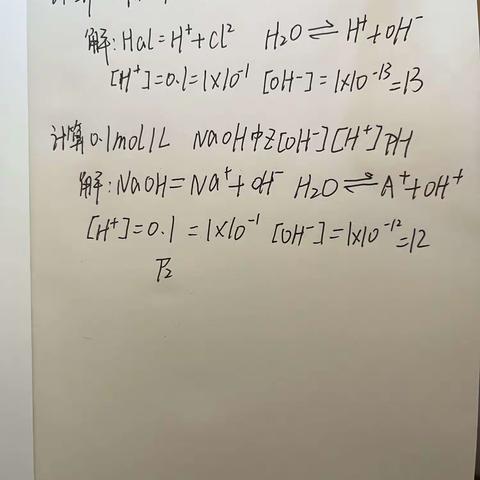 解:Hal=H⁺+Cl² H₂O⇌H⁺+OH⁻
[H⁺]=0.1=1×10⁻¹ [OH⁻]=1×10⁻¹³=13
计算0.1mol/L NaOH中[OH⁻][H⁺]PH
解:NaOH=Na⁺+OH⁻ H₂O⇌A⁺+OH⁺
[H⁺]=0.1=1×10⁻¹ [OH⁻]=1×10⁻¹²=12